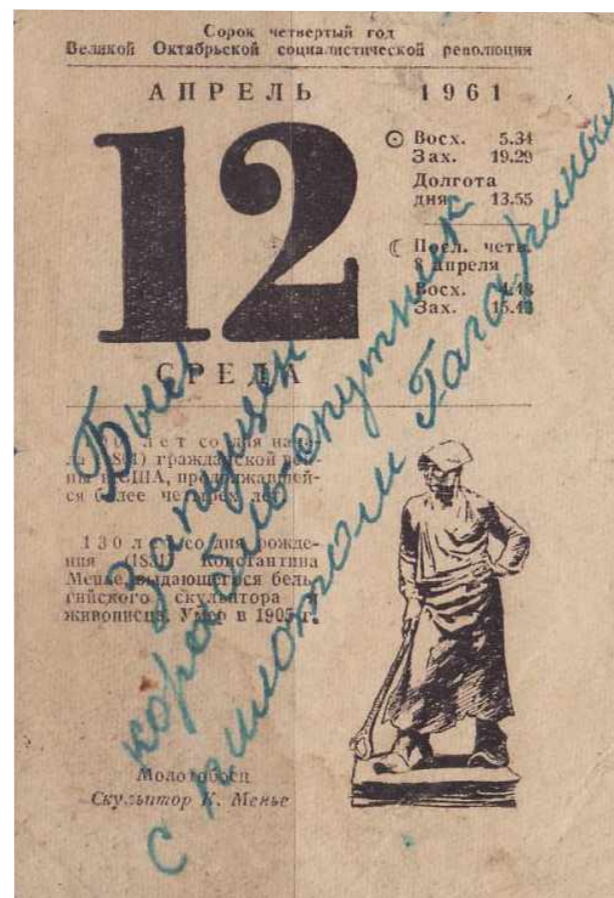 Сорок четвертый год
Великой Октябрьской социалистической революции
АПРЕЛЬ 1961
12
СРЕДА
Восх. 5.34
Зах. 19.29
Долгота
дня 13.55
Посл. четв.
8 апреля
Восх. 4.18
Зах. 15.13
100 лет со дня нача-
ла (1861) гражданской вой-
ны в США, продолжавшей-
ся более четырех лет.
130 лет со дня рожде-
ния (1831) Константина
Менье, выдающегося бель-
гийского скульптора и
живописца. Умер в 1905 г.
Молотобоец
Скульптор К. Менье
Был
запущен
корабль-спутник
с пилотом Гагариным